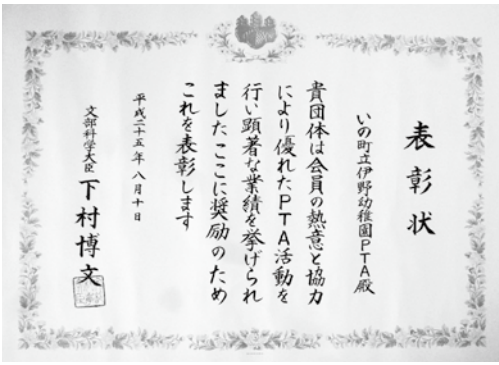 表彰状
いの町立伊野幼稚園PTA殿
貴団体は会員の熱意と協力
により優れたPTA活動を
行い顕著な業績を挙げられ
ました ここに奨励のため
これを表彰します
平成二十五年八月十日
文部科学大臣 下村博文